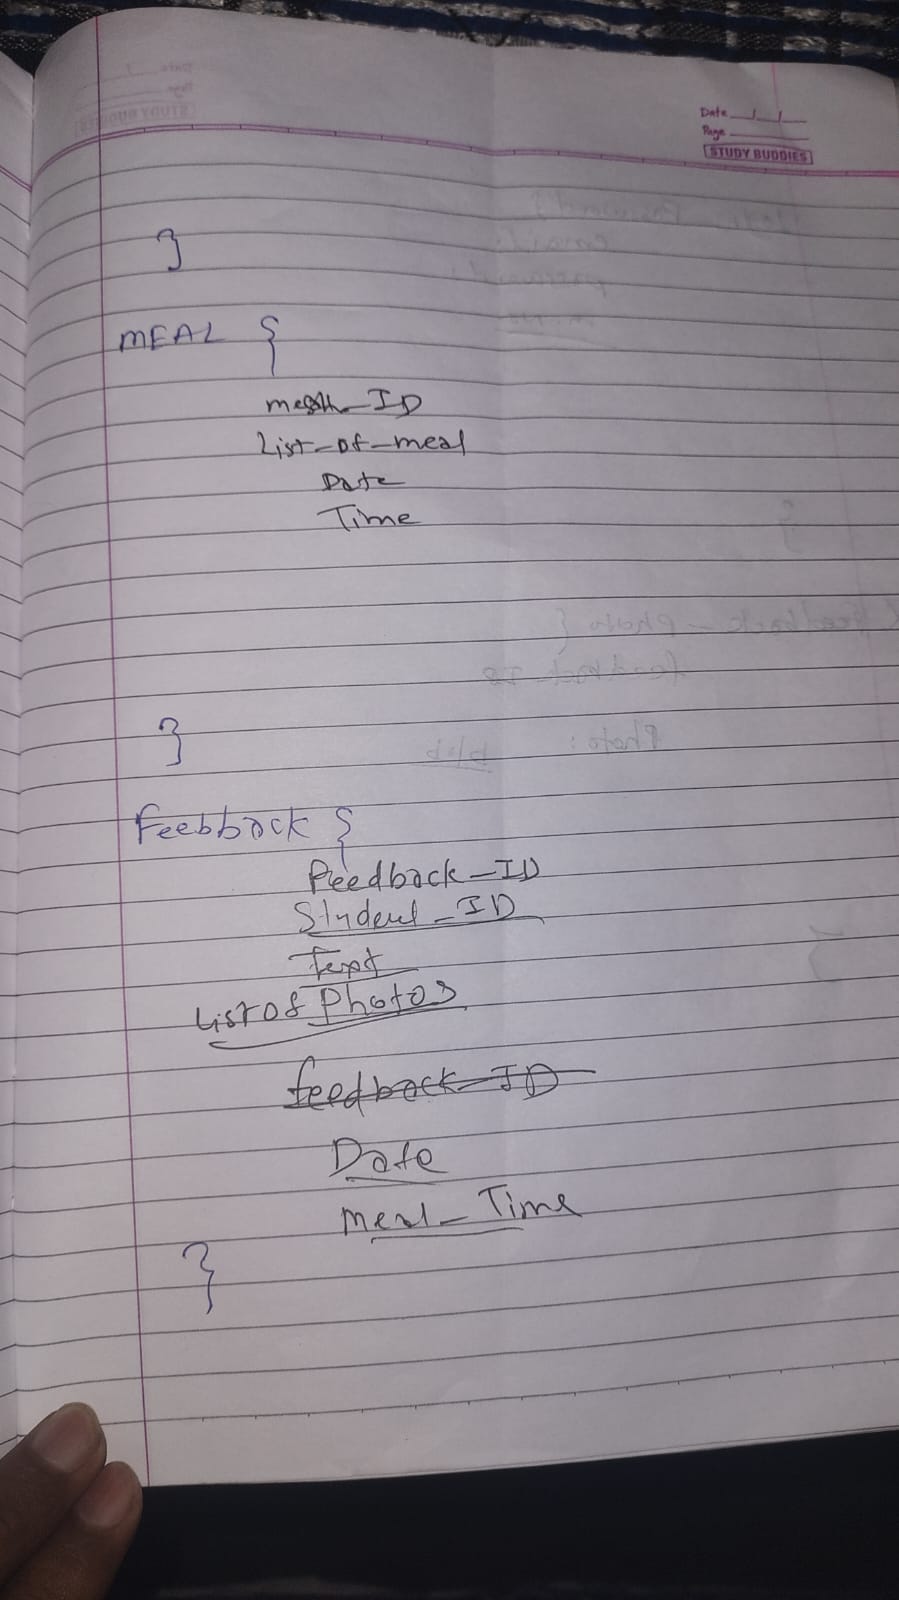 Date
Page
STUDY BUDDIES
}
MEAL {
List-of-meal
Date
Time
}
Feebback {
Feedback-ID
Student-ID
Text
List of Photos
feedback-ID
Date
meal-Time
}